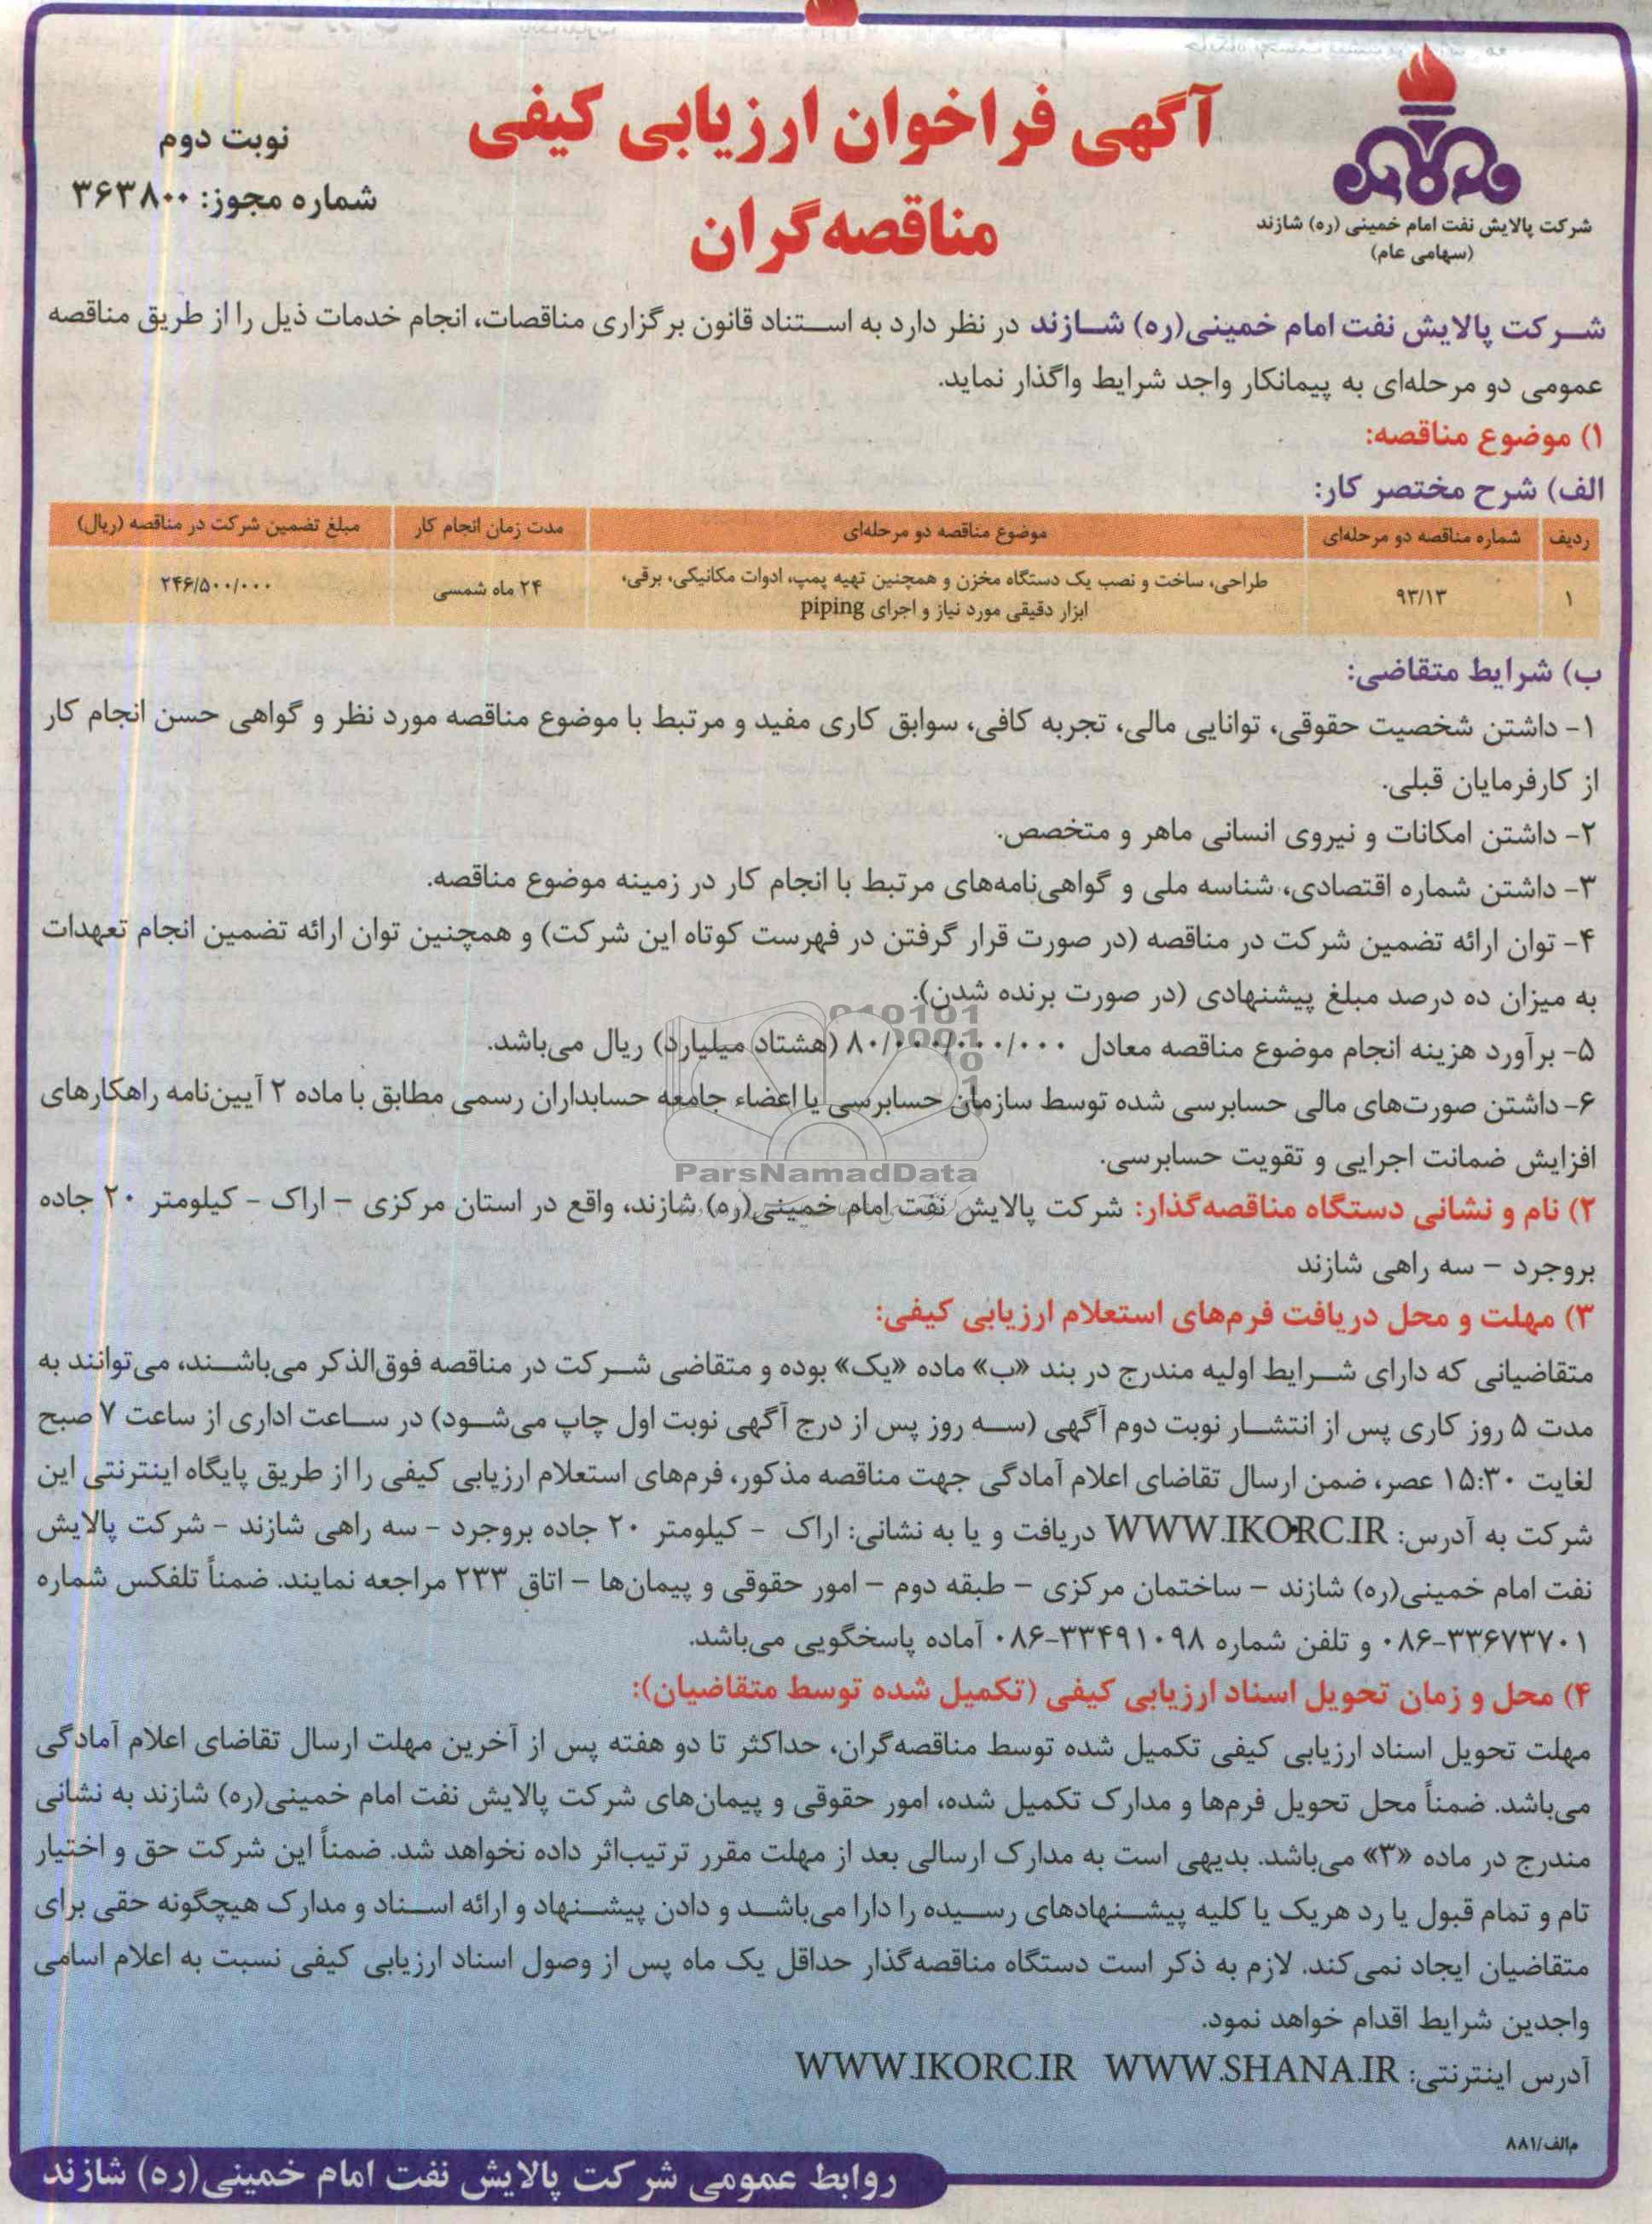 آگهی فراخوان ارزیابی کیفی
مناقصه‌گران
نوبت دوم
شماره مجوز: ۳۶۳۸۰۰
شرکت پالایش نفت امام خمینی (ره) شازند
(سهامی عام)
شرکت پالایش نفت امام خمینی(ره) شازند در نظر دارد به استناد قانون برگزاری مناقصات، انجام خدمات ذیل را از طریق مناقصه
عمومی دو مرحله‌ای به پیمانکار واجد شرایط واگذار نماید.
۱) موضوع مناقصه:
الف) شرح مختصر کار:
ردیف شماره مناقصه دو مرحله‌ای موضوع مناقصه دو مرحله‌ای مدت زمان انجام کار مبلغ تضمین شرکت در مناقصه (ریال)
۱ ۹۳/۱۳ طراحی، ساخت و نصب یک دستگاه مخزن و همچنین تهیه پمپ، ادوات مکانیکی، برقی، ۲۴ ماه شمسی ۲۴۶/۵۰۰/۰۰۰
ابزار دقیقی مورد نیاز و اجرای piping
ب) شرایط متقاضی:
۱- داشتن شخصیت حقوقی، توانایی مالی، تجربه کافی، سوابق کاری مفید و مرتبط با موضوع مناقصه مورد نظر و گواهی حسن انجام کار
از کارفرمایان قبلی.
۲- داشتن امکانات و نیروی انسانی ماهر و متخصص.
۳- داشتن شماره اقتصادی، شناسه ملی و گواهی‌نامه‌های مرتبط با انجام کار در زمینه موضوع مناقصه.
۴- توان ارائه تضمین شرکت در مناقصه (در صورت قرار گرفتن در فهرست کوتاه این شرکت) و همچنین توان ارائه تضمین انجام تعهدات
به میزان ده درصد مبلغ پیشنهادی (در صورت برنده شدن).
۵- برآورد هزینه انجام موضوع مناقصه معادل ۸۰/۰۰۰/۰۰۰/۰۰۰ (هشتاد میلیارد) ریال می‌باشد.
۶- داشتن صورت‌های مالی حسابرسی شده توسط سازمان حسابرسی یا اعضاء جامعه حسابداران رسمی مطابق با ماده ۲ آیین‌نامه راهکارهای
افزایش ضمانت اجرایی و تقویت حسابرسی.
ParsNamadData
۲) نام و نشانی دستگاه مناقصه‌گذار: شرکت پالایش نفت امام خمینی(ره) شازند، واقع در استان مرکزی – اراک – کیلومتر ۲۰ جاده
بروجرد – سه راهی شازند
۳) مهلت و محل دریافت فرم‌های استعلام ارزیابی کیفی:
متقاضیانی که دارای شرایط اولیه مندرج در بند «ب» ماده «یک» بوده و متقاضی شرکت در مناقصه فوق‌الذکر می‌باشند، می‌توانند به
مدت ۵ روز کاری پس از انتشار نوبت دوم آگهی (سه روز پس از درج آگهی نوبت اول چاپ می‌شود) در ساعت اداری از ساعت ۷ صبح
لغایت ۱۵:۳۰ عصر، ضمن ارسال تقاضای اعلام آمادگی جهت مناقصه مذکور، فرم‌های استعلام ارزیابی کیفی را از طریق پایگاه اینترنتی این
شرکت به آدرس: WWW.IKORC.IR دریافت و یا به نشانی: اراک – کیلومتر ۲۰ جاده بروجرد – سه راهی شازند – شرکت پالایش
نفت امام خمینی(ره) شازند – ساختمان مرکزی – طبقه دوم – امور حقوقی و پیمان‌ها – اتاق ۲۳۳ مراجعه نمایند. ضمناً تلفکس شماره
۰۸۶-۳۳۶۷۳۷۰۱ و تلفن شماره ۰۸۶-۳۳۴۹۱۰۹۸ آماده پاسخگویی می‌باشد.
۴) محل و زمان تحویل اسناد ارزیابی کیفی (تکمیل شده توسط متقاضیان):
مهلت تحویل اسناد ارزیابی کیفی تکمیل شده توسط مناقصه‌گران، حداکثر تا دو هفته پس از آخرین مهلت ارسال تقاضای اعلام آمادگی
می‌باشد. ضمناً محل تحویل فرم‌ها و مدارک تکمیل شده، امور حقوقی و پیمان‌های شرکت پالایش نفت امام خمینی(ره) شازند به نشانی
مندرج در ماده «۳» می‌باشد. بدیهی است به مدارک ارسالی بعد از مهلت مقرر ترتیب‌اثر داده نخواهد شد. ضمناً این شرکت حق و اختیار
تام و تمام قبول یا رد هریک یا کلیه پیشنهادهای رسیده را دارا می‌باشد و دادن پیشنهاد و ارائه اسناد و مدارک هیچگونه حقی برای
متقاضیان ایجاد نمی‌کند. لازم به ذکر است دستگاه مناقصه‌گذار حداقل یک ماه پس از وصول اسناد ارزیابی کیفی نسبت به اعلام اسامی
واجدین شرایط اقدام خواهد نمود.
آدرس اینترنتی: WWW.IKORC.IR WWW.SHANA.IR
م‌الف/۸۸۱
روابط عمومی شرکت پالایش نفت امام خمینی(ره) شازند